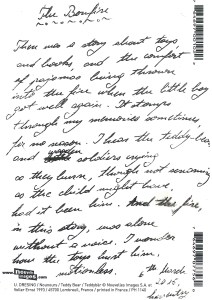 The Bonfire
There was a story about toys
and books, and the comfort
of pajamas being thrown
into the fire when the little boy
got well again. It stamps
through my memories sometimes,
for no reason. I hear the teddy-bear
and wooden soldiers crying
as they burn, though not screaming
as the child might have,
had it been him. And the fire,
in this story, was alone
without a voice. I wonder
how the toys hurt him,
motionless.
6th March
2015.
U. DRESING / Nounours / Teddy Bear / Teddybär © Nouvelles Images S.A. et
Atelier Ernst 1993 / 45700 Lombreuil, France / printed in France / PH 1145